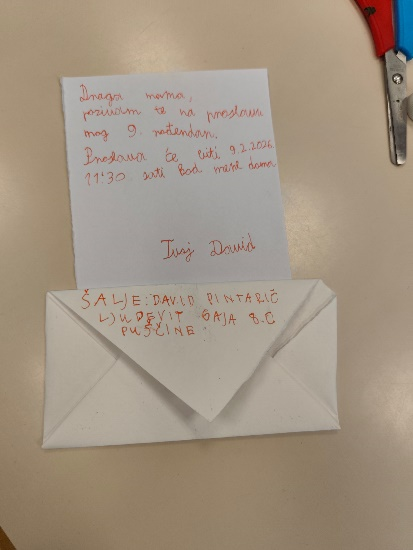 Draga mama,
pozivam te na proslavu
mog 9. rođendan.
Proslava će biti 9.2.2026.
11:30 sati kod mene doma
Tvoj David
ŠALJE: DAVID PINTARIČ
LJUDEVIT GAJA 8.C
PUŠČINE